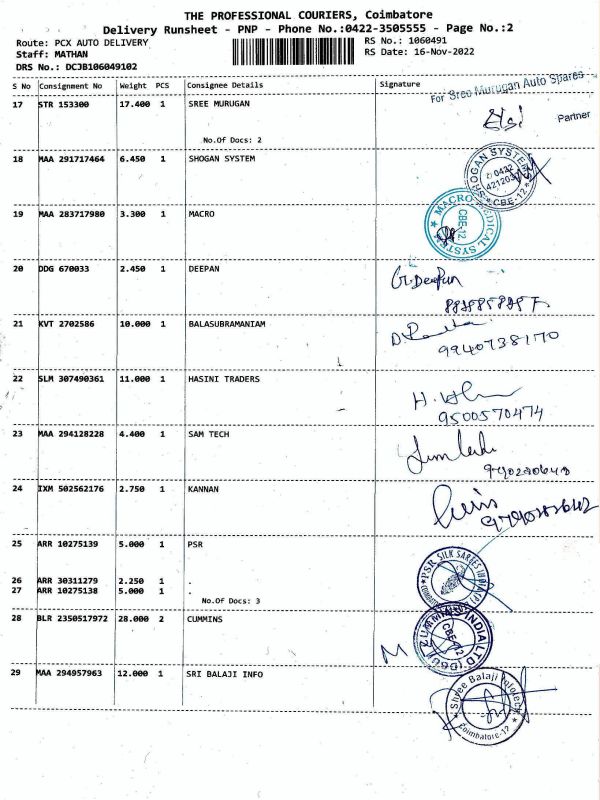 THE PROFESSIONAL COURIERS, Coimbatore
Delivery Runsheet - PNP - Phone No.:0422-3505555 - Page No.:2
Route: PCX AUTO DELIVERY
RS No.: 1060491
Staff: MATHAN
RS Date: 16-Nov-2022
DRS No.: DCJB106049102
S No Consignment No Weight PCS Consignee Details Signature
For Sree Murugan Auto Spares
17 STR 153300 17.400 1 SREE MURUGAN
Partner
No.Of Docs: 2
18 MAA 291717464 6.450 1 SHOGAN SYSTEM
SHOGAN SYSTEMS
0422
CBE-12
19 MAA 283717980 3.300 1 MACRO
MACRO MEDICAL SYSTEMS
CBE-12
20 DDG 670033 2.450 1 DEEPAN
G. Deepan
21 KVT 2702586 10.000 1 BALASUBRAMANIAM
9940738170
22 SLM 307490361 11.000 1 HASINI TRADERS
9500570474
23 MAA 294128228 4.400 1 SAM TECH
24 IXM 502562176 2.750 1 KANNAN
25 ARR 10275139 5.000 1 PSR
PSR SILK SAREES INDIA (P)
26 ARR 30311279 2.250 1 .
27 ARR 10275138 5.000 1 .
No.Of Docs: 3
28 BLR 2350517972 28.000 2 CUMMINS
CUMMINS INDIA LTD
CBE-12
M
29 MAA 294957963 12.000 1 SRI BALAJI INFO
Shree Balaji Infotech
Coimbatore-12